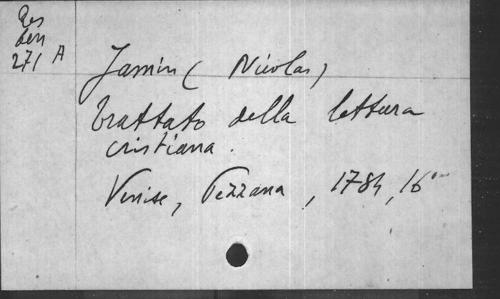 Res
271 A
Jamin (Nicolas)
Trattato della lettura
cristiana.
Venise, Pezzana, 1784, 16°